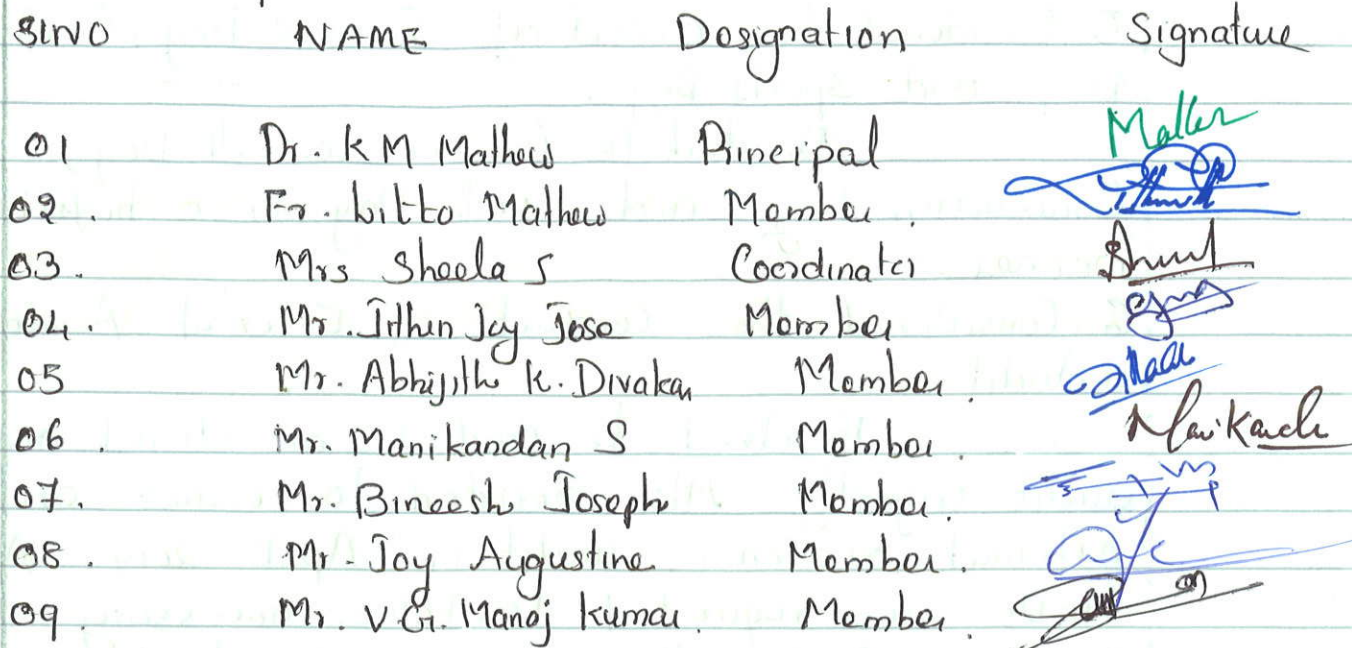 SLNO NAME Designation Signature
01 Dr. K M Mathew Principal
02. Fr. Litto Mathew Member.
03. Mrs Sheela S Coordinator
04. Mr. Jithin Jay Jose Member
05 Mr. Abhijith K. Divakar Member.
06. Mr. Manikandan S Member.
07. Mr. Bineesh Joseph Member.
08. Mr. Joy Augustine Member.
09. Mr. V G. Manoj Kumar. Member.